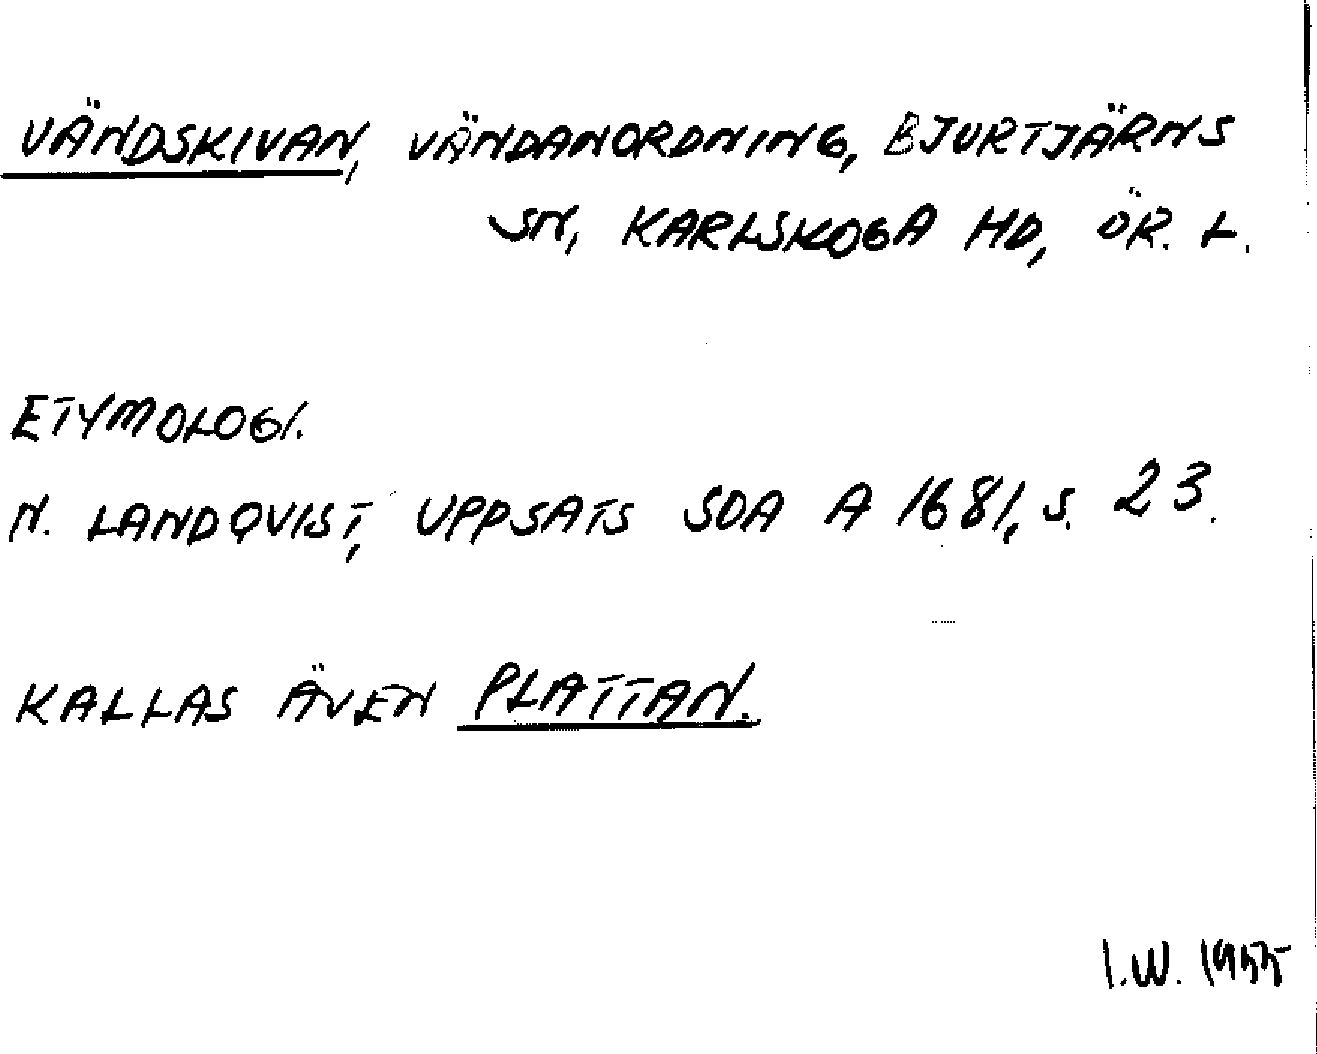 VÄNDSKIVAN, VÄNDANORDNING, BJURTJÄRNS
SN, KARLSKOGA HD, ÖR. L.
ETYMOLOGI.
N. LANDQVIST, UPPSATS SOA A 1681, S. 23.
KALLAS ÄVEN PLATTAN.
I.W. 1955